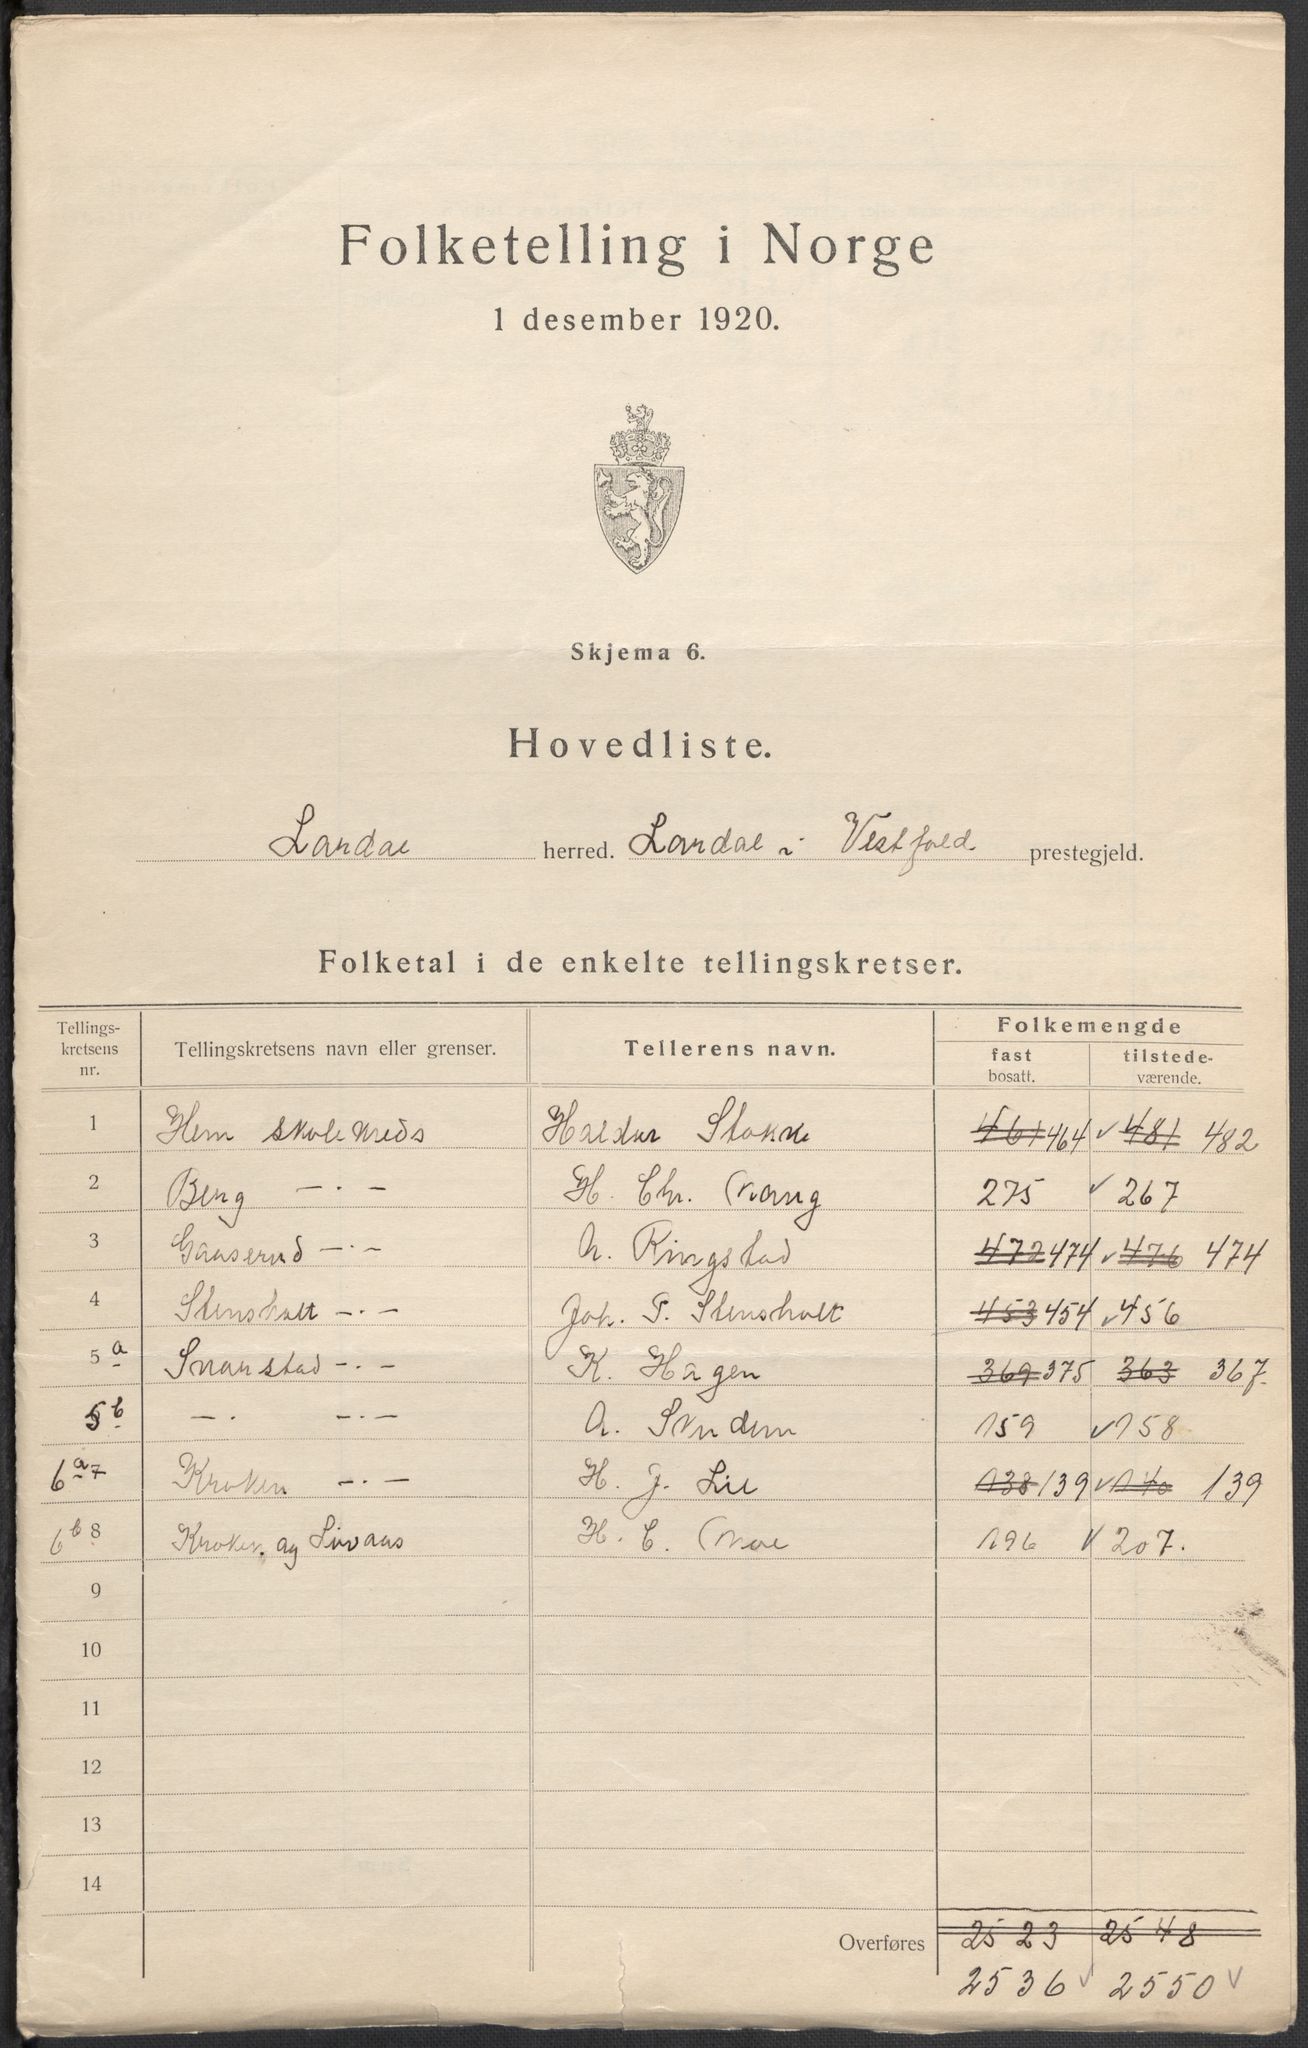 Folketelling i Norge
1 desember 1920.
Skjema 6.
Hovedliste.
Lardal herred. Lardal i Vestfold prestegjeld.
Folketal i de enkelte tellingskretser.
Tellings-kretsens nr. Tellingskretsens navn eller grenser. Tellerens navn. Folkemengde
fast bosatt. tilstede-værende.
1 Hem skolekreds Haldor Stokke 461 464 ✓ 481 482
2 Berg —·— H. Chr. 275 ✓ 267
3 Gaaserud —·— A. Ringstad 472 474 ✓ 476 474
4 Stensholt —·— Joh. P. Stensholt 453 454 ✓ 456
5 a Svarstad —·— K. Hagen 369 375 363 367.
5 b —·— —·— A. 159 ✓ 158
6 a 7 Kroken —·— H. J. Lie 138 139 ✓ 140 139
6 b 8 Kroken og Livaas H. C. Moe 196 ✓ 207.
9
10
11
12
13
14
Overføres 2523 2548
2536 ✓ 2550 ✓